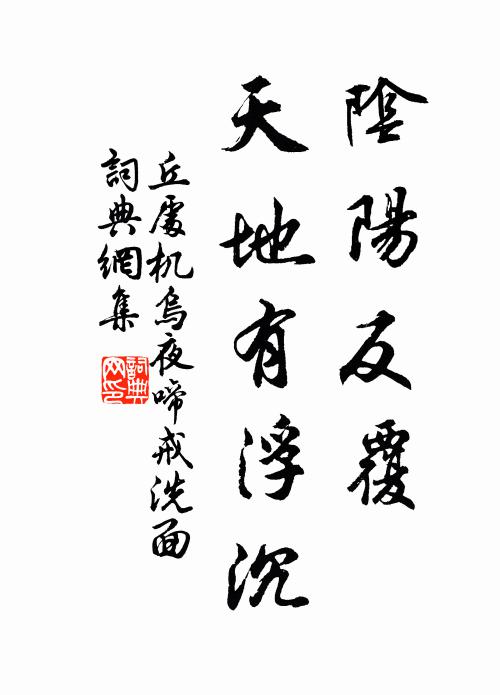 陰陽反覆
天地有浮沉
丘處机烏夜啼戒洗面
詞典網集
詞典
网印